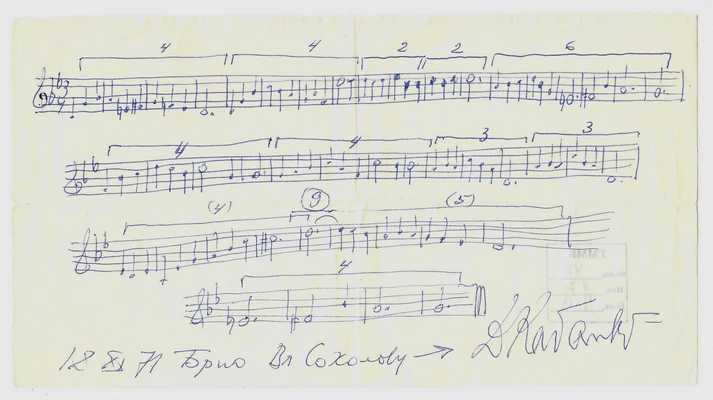 4 4 2 2 6
4 4 3 3
(4) 9 (5)
4
12 XI 71 Брно Вл Соколову → DКабалевс